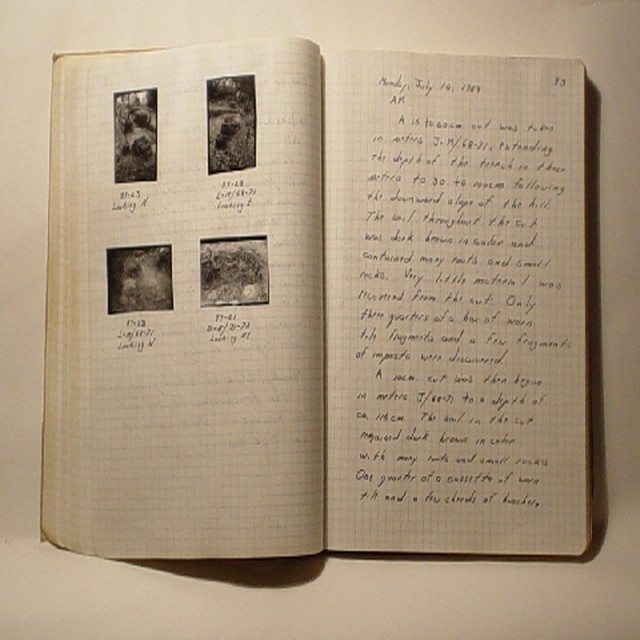 Looking N
Looking E
Looking W
Monday, July 10, 1989
93
AM
A 15 to 20cm. cut was taken
in meters J-M/68-71, extending
the depth of the trench in these
meters to 30 to 100cm following
the downward slope of the hill.
The soil throughout the cut
was dark brown in color and
contained many roots and small
rocks. Very little material was
recovered from the cut. Only
three quarters of a box of worn
tile fragments and a few fragments
of impasto were discovered.
A 10cm. cut was then begun
in meters J/68-71 to a depth of
ca. 110cm. The soil in the cut
remained dark brown in color
with many roots and small rocks.
One quarter of a cassetta of worn
tile and a few sherds of bucchero,